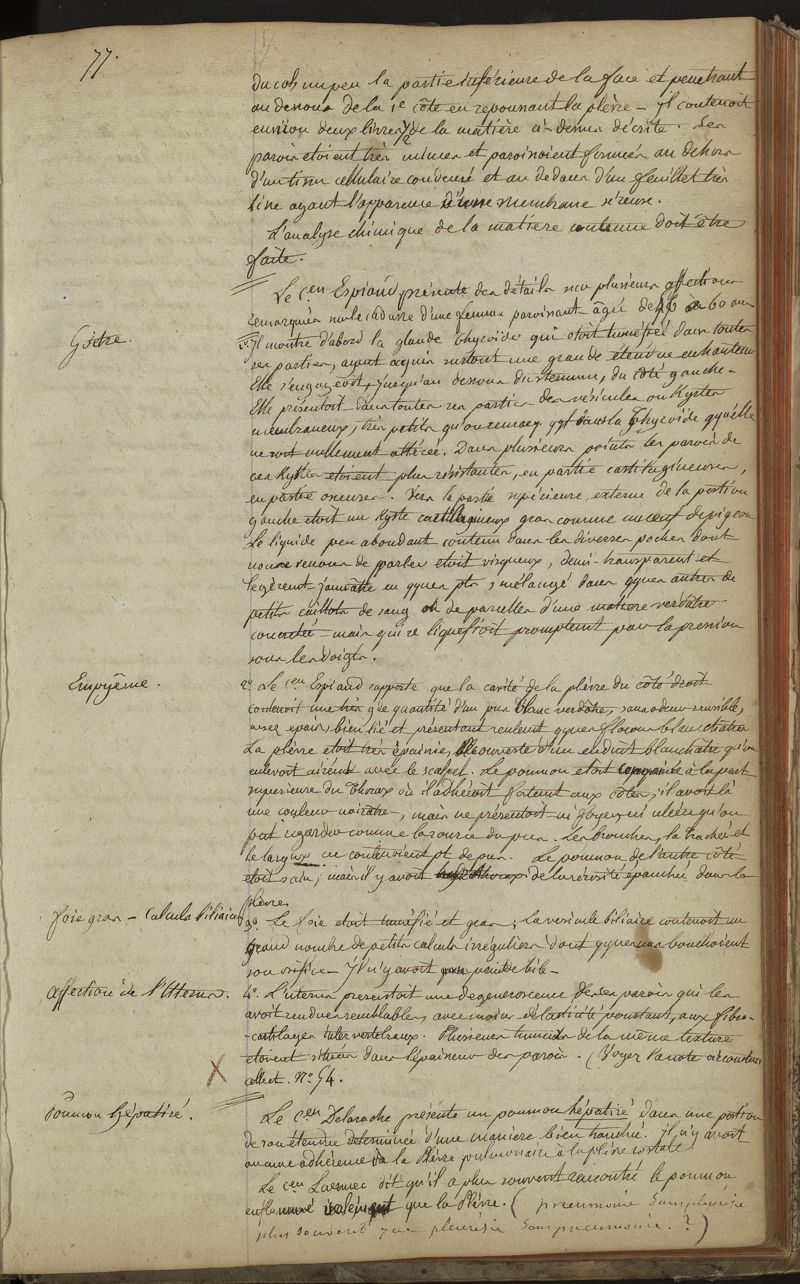 77.
du col, un peu la partie inférieure de la face et penetrant
au dessous de la 1e côte en repoussant la plèvre – Il contenoit
environ deux livres 1/2 de la matière ci-dessus décrite. Ses
parois etoient très minces et paroissoient formées au dehors
d'un tissu cellulaire condensé et au dedans d'un feuillet très
fine ayant l'apparence d'une membrane séreuse.
L'analyse chimique de la matiere contenue doit être
faite.
Le Cen Espiaud présente des détails sur plusieurs affections
remarquées sur le cadavre d'une femme paroissant âgée de 56 à 60 ans
Goître.
1o. Il montre d'abord la glande Thyroïde qui etoit tuméfiée dans toutes
ses parties, ayant acquis surtout une grande étendue en hauteur
Elle s'engageoit, jusqu'au dessous du sternum, du côté gauche –
Elle présentoit dans toutes ses parties des vésicules ou Kystes
membraneux, très petits qu'on remarq. qqf. dans la Thyroïde qu'elle
ne soit nullement altérée. Dans plusieurs points les parois de
ces Kystes etoient plus résistantes, en partie cartilagineuses,
en partie osseuses. Vers la partie supérieure externe de la portion
gauche etoit un Kyste cartilagineux gros comme un oeuf de pigeon
Le liquide peu abondant contenu dans les diverses poches dont
nous venons de parler etoit visqueux, demi-transparent et
legèremt jaunâtre en qques pts, mélangé dans qques autres de
petits caillots de sang ou de parcelles d'une matiere verdâtre
concrète – mais qui se liquefioit promptemt par la pression
sous les doigts.
Empyême.
2o. Le Cen Espiaud rapporte que la cavité de la plèvre du côté droit
contenoit une très gde quantité d'un pus blanc verdâtre, sans odeur sensible,
assez épais, bien lié et présentant seulemt qques flocons blanchâtres
La plèvre etoit très épaissie, recouverte d'un enduit blanchâtre qu'on
enlevoit aisémt avec le scalpel. Le poumon etoit comprimé à la part.
superieure du Thorax où il adhéroit fortemt aux côtes; il avoit là
une couleur noirâtre, mais ne présentoit ni foyer, ni ulcère qu'on
put regarder comme la source du pus. Les bronches, la trachée et
le larynx ne contenoient pt de pus. Le poumon de l'autre côté
etoit sain; mais il y avoit de la sérosité épanchée dans la
plèvre.
foie gras – Calculs biliaires
3o. Le foie etoit tuméfié et gras; la vesicule biliaire contenoit un
grand nombre de petits calculs irréguliers dont qques uns bouchoient
son orifice – Il n'y avoit point de bile –
affection de l'Uterus.
4o. L'uterus presentoit une degenerescence de ses parois qui les
avoit rendues semblables, avec moins d'elasticité pourtant, aux fibro-
-cartilages intervertebraux. Plusieurs tumeurs de la même texture
etoient situées dans l'épaisseur des parois. (Voyez l'anote
collect. No 54.
X
Poumon hépatisé.
Le Cen Delaroche présente un poumon hépatisé dans une portion
de son étendue déterminée d'une maniere bien tranchée. Il n'y avoit
aucune adhérence de la Plèvre pulmonaire à la plèvre costale
Le Cen Laennec dit qu'il a plus souvent rencontré le poumon
enflammé que la Plèvre. (pneumonie sans pleurésie
plus souvent que pleurésie sans pneumonie. ?)